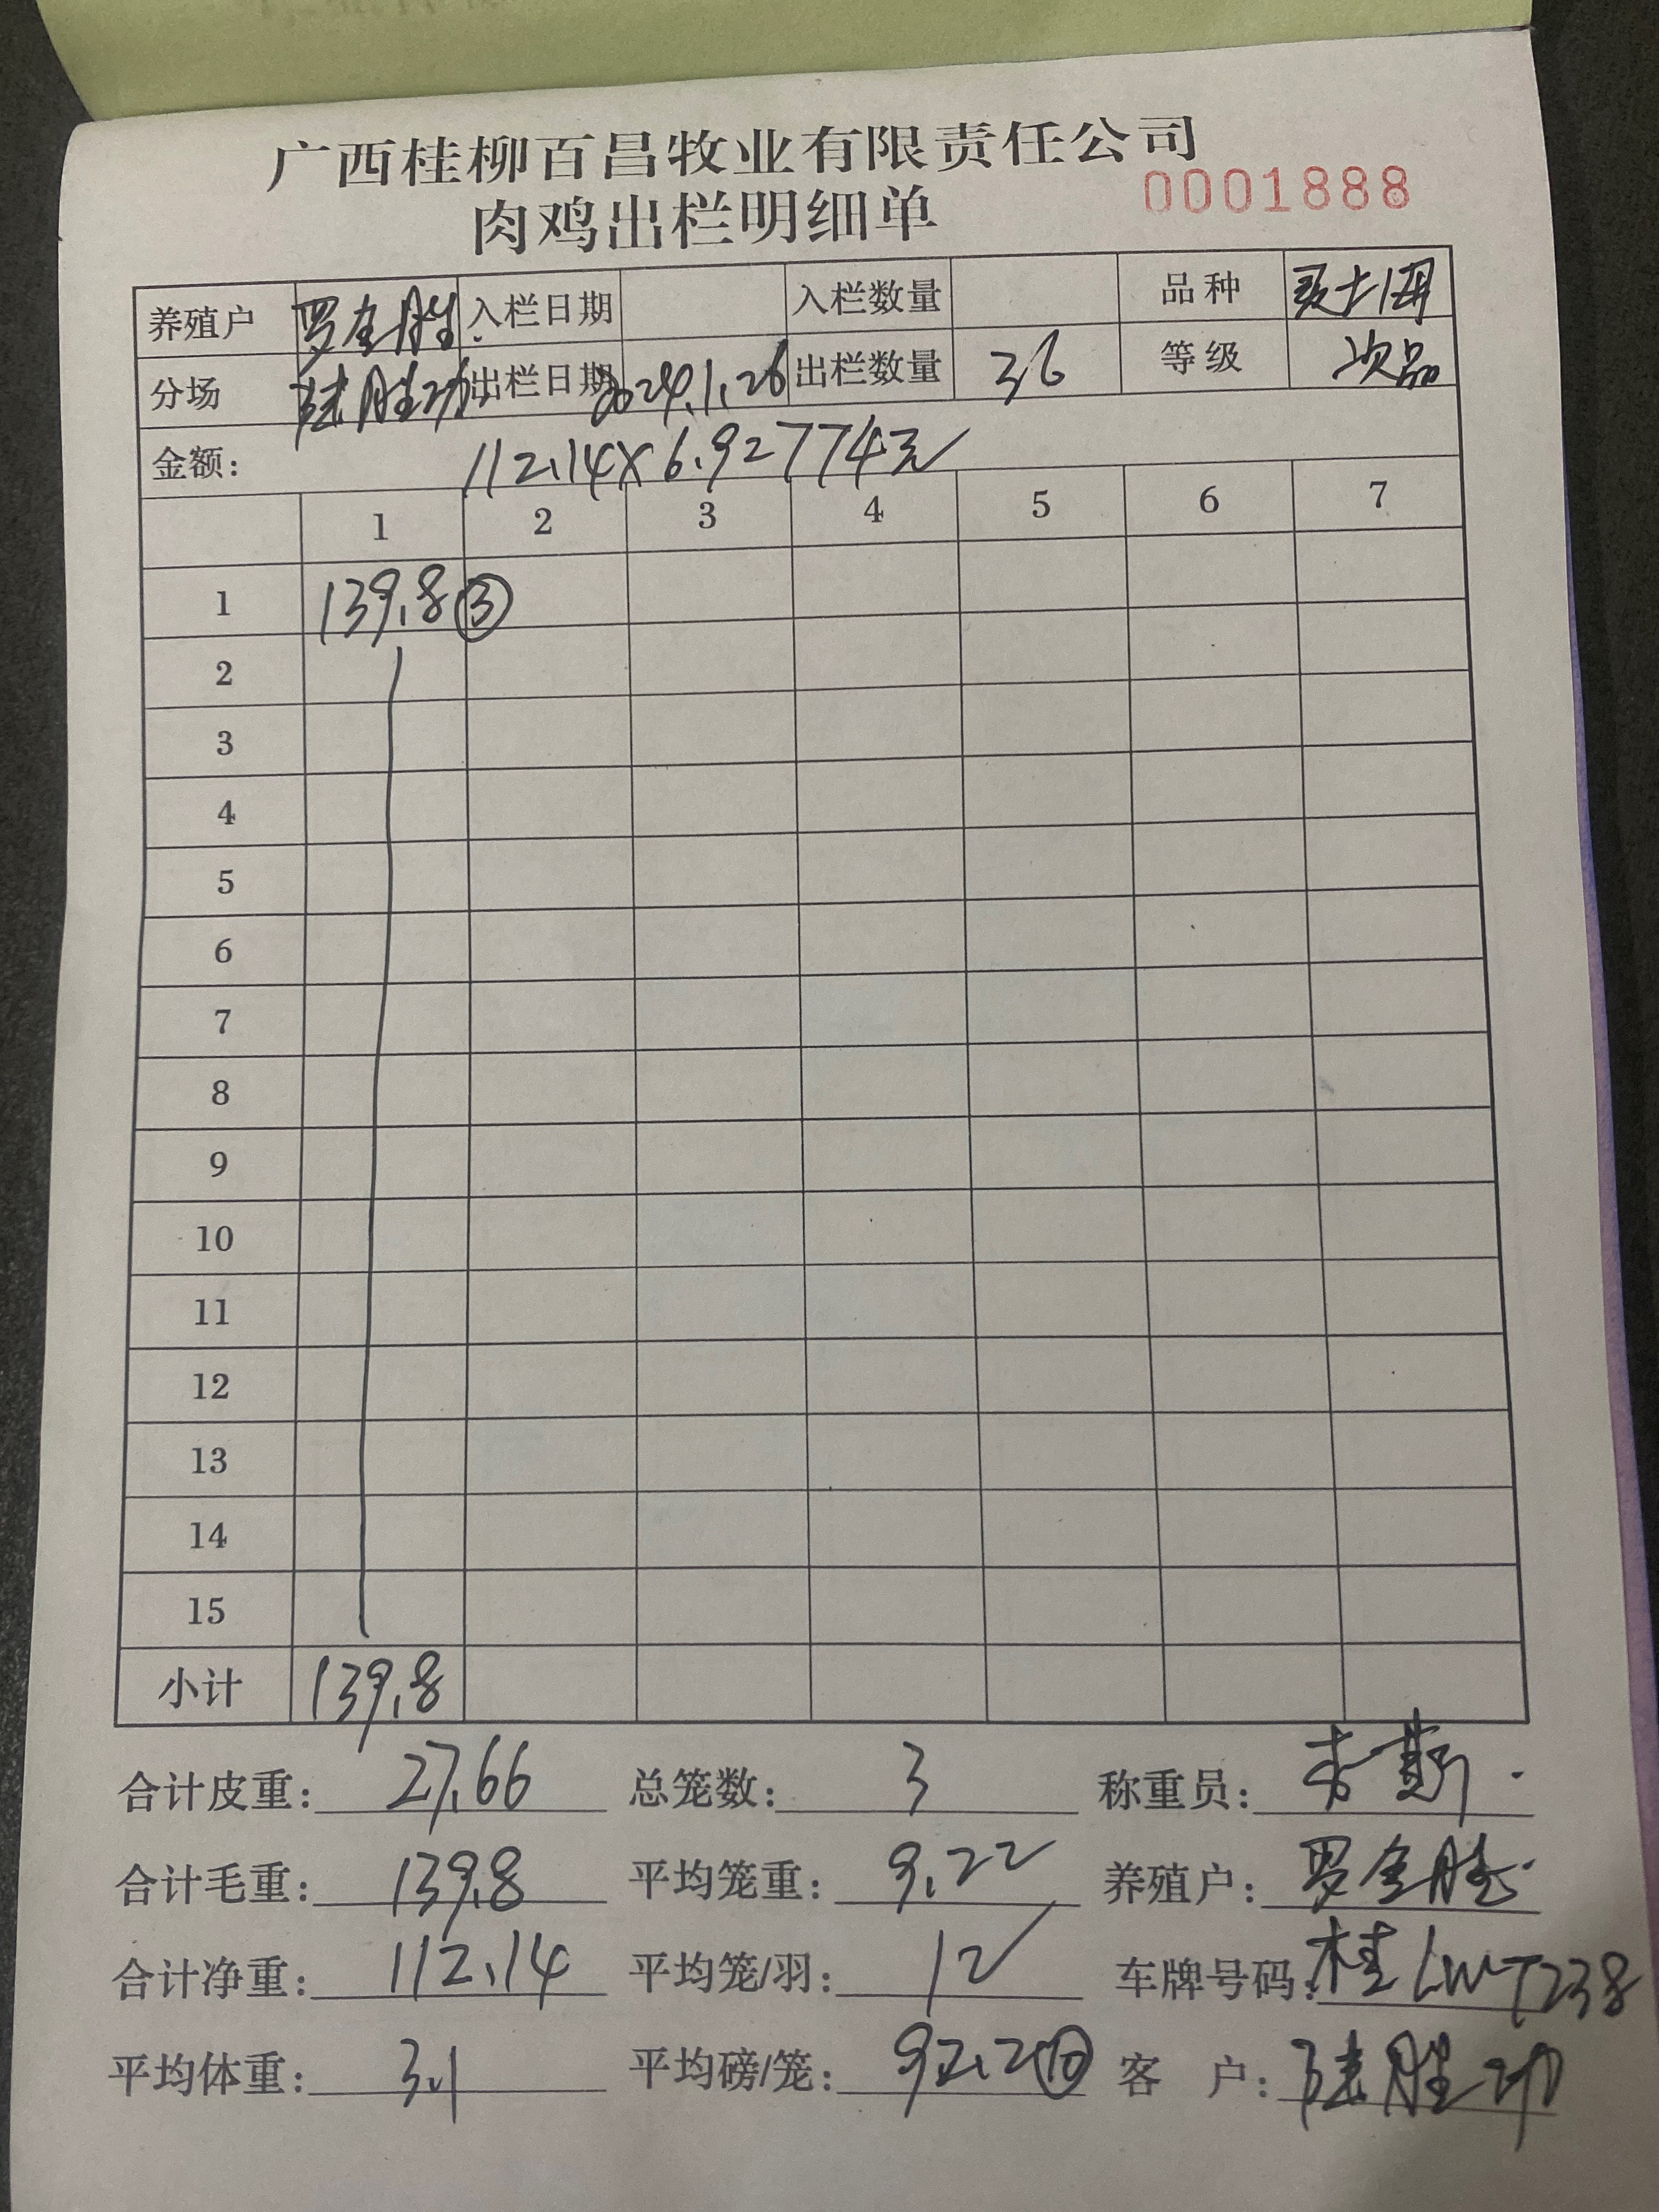 广西桂柳百昌牧业有限责任公司
肉鸡出栏明细单 0001888
养殖户 罗金胜 入栏日期 入栏数量 品种
分场 陆胜功 出栏日期 2024.1.26 出栏数量 36 等级 次品
金额: 112.14×6.9=774元
1 2 3 4 5 6 7
1 139.8 ③
2
3
4
5
6
7
8
9
10
11
12
13
14
15
小计 139.8
合计皮重: 27.66 总笼数: 3 称重员:
合计毛重: 139.8 平均笼重: 9.22 养殖户: 罗金胜
合计净重: 112.14 平均笼/羽: 12 车牌号码: 桂
平均体重: 3.1 平均磅/笼: 92.2⑩ 客 户: 陆胜功